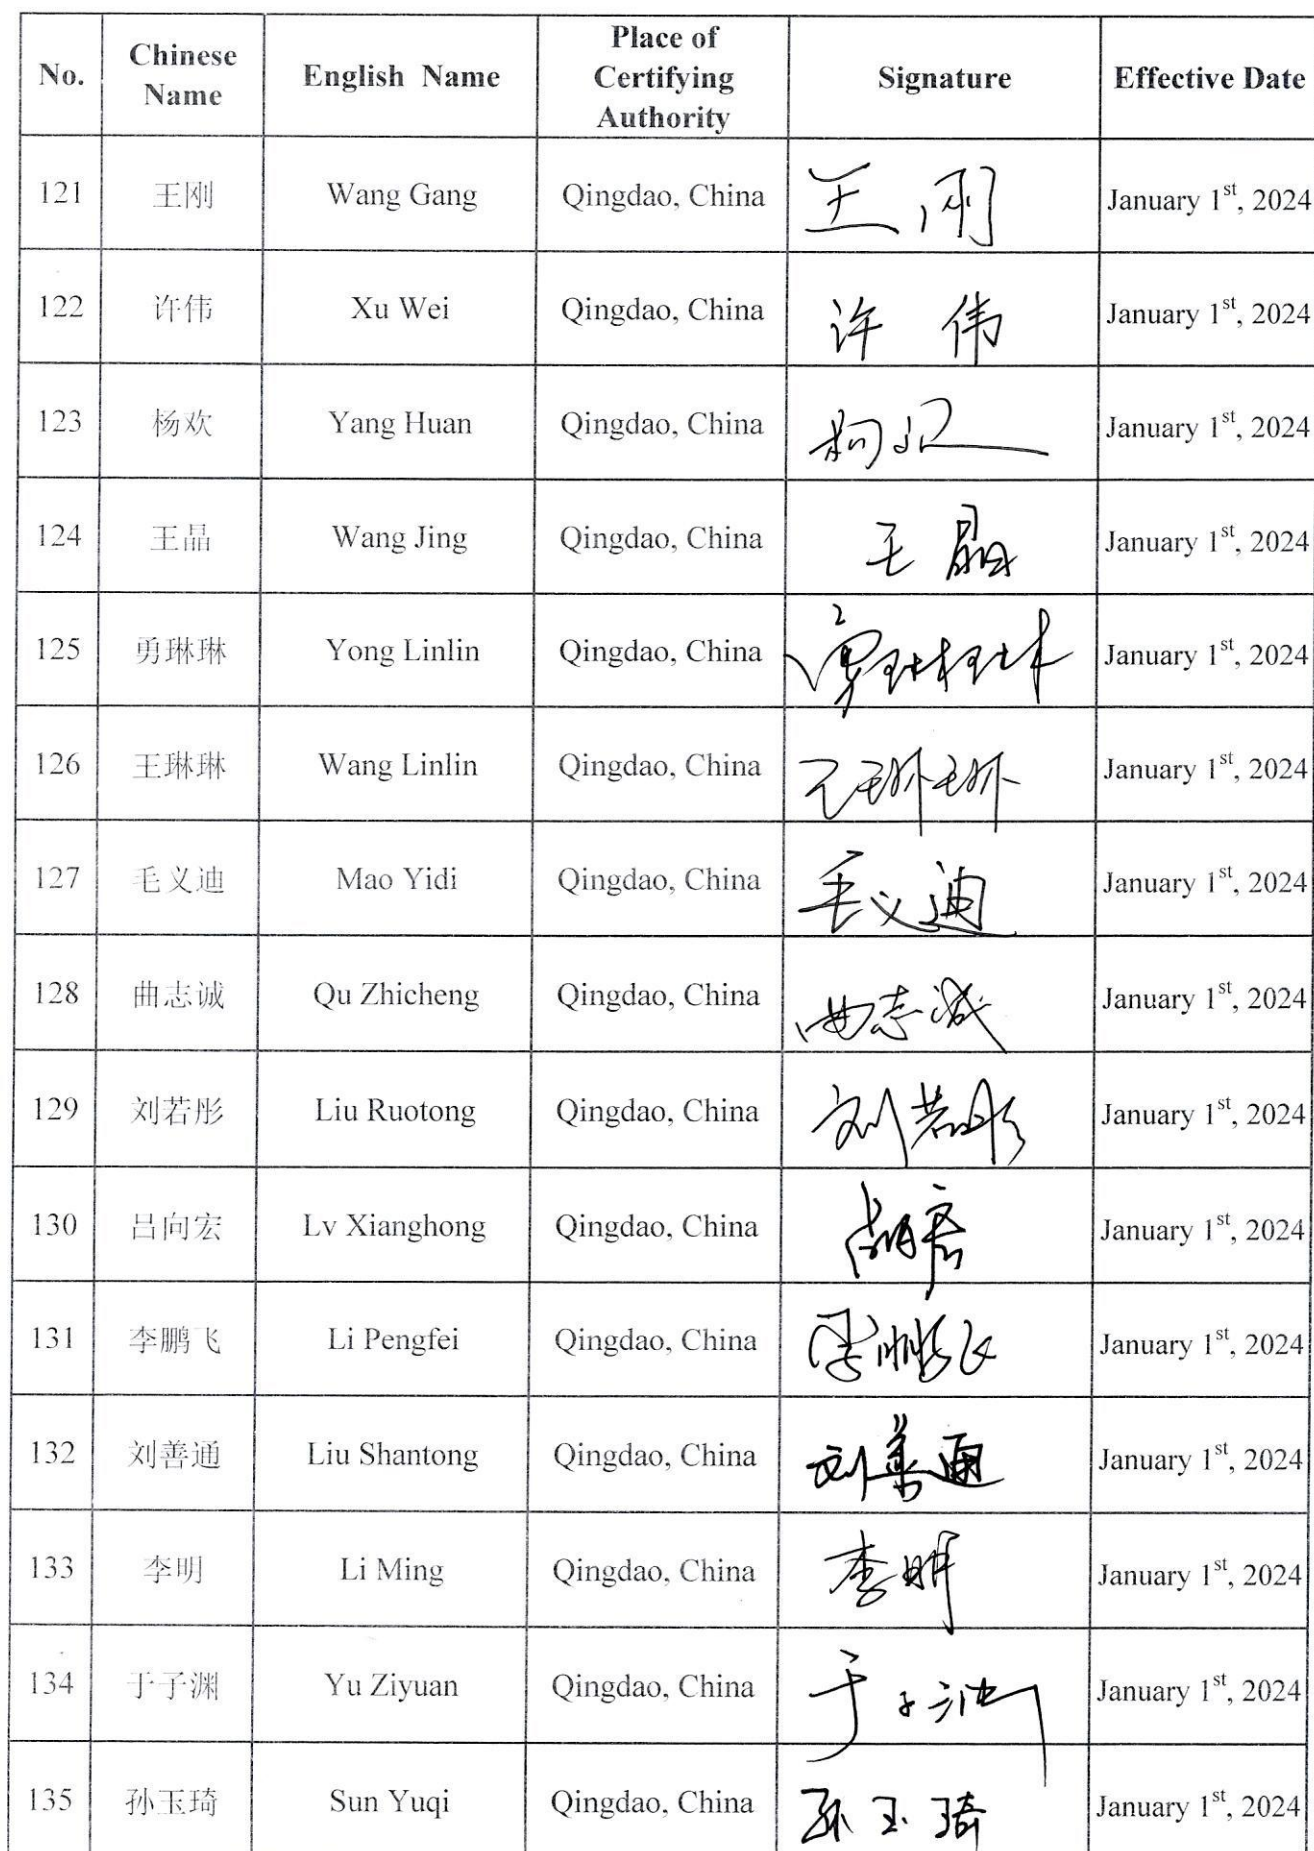 No. Chinese Name English Name Place of Certifying Authority Signature Effective Date
121 王刚 Wang Gang Qingdao, China 王刚 January 1st, 2024
122 许伟 Xu Wei Qingdao, China 许伟 January 1st, 2024
123 杨欢 Yang Huan Qingdao, China 杨欢 January 1st, 2024
124 王晶 Wang Jing Qingdao, China 王晶 January 1st, 2024
125 勇琳琳 Yong Linlin Qingdao, China January 1st, 2024
126 王琳琳 Wang Linlin Qingdao, China 王琳琳 January 1st, 2024
127 毛义迪 Mao Yidi Qingdao, China 毛义迪 January 1st, 2024
128 曲志诚 Qu Zhicheng Qingdao, China 曲志诚 January 1st, 2024
129 刘若彤 Liu Ruotong Qingdao, China 刘若彤 January 1st, 2024
130 吕向宏 Lv Xianghong Qingdao, China January 1st, 2024
131 李鹏飞 Li Pengfei Qingdao, China 李鹏飞 January 1st, 2024
132 刘善通 Liu Shantong Qingdao, China 刘善通 January 1st, 2024
133 李明 Li Ming Qingdao, China 李明 January 1st, 2024
134 于子渊 Yu Ziyuan Qingdao, China 于子渊 January 1st, 2024
135 孙玉琦 Sun Yuqi Qingdao, China 孙玉琦 January 1st, 2024